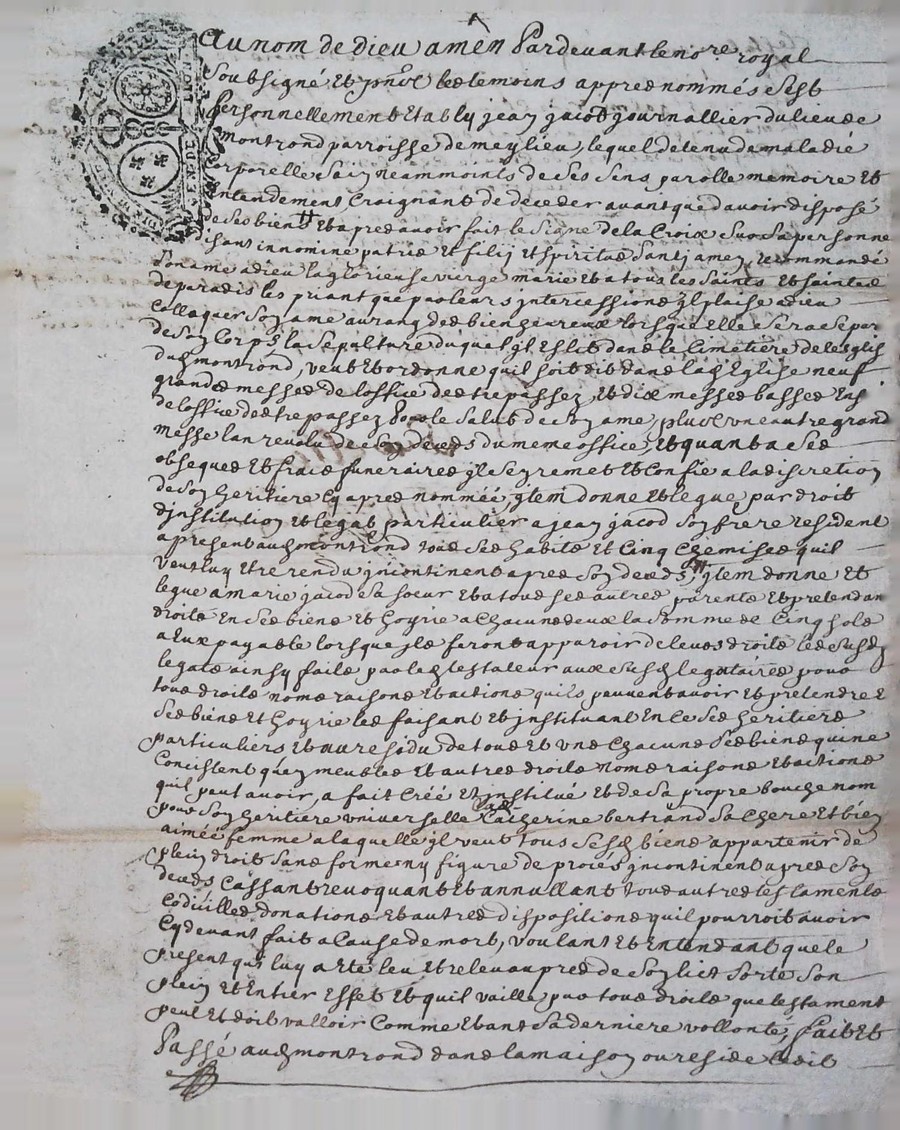 Au nom de Dieu amen Pardevant le no.re royal
Soubsigné Et pnts les temoins appres nommés Sest
personnellement Etably jean jacod journallier du lieu de
montrond parroisse de meylieu, lequel detenu de maladie
Corporelle Sain neammoints de Ses Sens parolle memoire Et
Entendement, Craignant de deceder avant que davoir disposé
de Ses biens Et apres avoir fait le Signe de la Croix Sur Sa personne
disant in nomine patris Et filij Et Spiritus Santj amen, recommandé
Son ame a dieu la glorieuse vierge marie Et a tous les Saints Et Saintes
de paradis les priant que par leurs jntercessions jl plaise a dieu
Colloquer Son ame au rang des bienheureux lorsquelle Sera Separ
de Son Corps, la Sepulture duquel jl Eslit dans le Cimetiere de leglis
dud montrond, veut Et ordonne quil Soit dit dans lad Eglise neuf
grandes messes de loffice des trepassez, Et dix messes basses Aussi
de loffice des trepassez Pour le Salut de Son ame, plus une autre grand
messe lan revolu de Son deceds du meme office, Et quant a Ses
obseques Et frais funeraires jl Sen remet Et Confie a la discretion
de Son heritiere Cy apres nommée, jtem donne Et legue par droit
djnstitution Et legat particulier a jean jacod Son frere resident
a present aud montrond tous Ses habits Et Cinq Chemises quil
veut luy Etre rendu jncontinent apres Son deceds, jtem donne Et
legue a marie jacod Sa Soeur Et a tous Ses autres parents Et pretendan
droits En Ses biens Et hoyrie a Chacun deux la Somme de Cinq Sols
a Eux payable lorsque jls feront apparoir de leurs droits les Susd
legats ainsy faits par led testateur aux Susd legataires pour
tous droits noms raisons Et actions quils peuvent avoir Et pretendre E
Ses biens Et hoyrie les faisant Et jnstituant En Ce Ses heritiers
particuliers Et au residu de tous Et uns Chacuns Ses biens qui ne
Concistent quen meubles Et autres droits noms raisons Et actions
quil peut avoir, a fait Créé Et jnstitué Et de Sa propre bouche nom
pour Son heritiere universelle Catherine bertrand Sa Chere Et bien
aimée femme a laquelle jl veut tous Sesd biens appartenir de
plein droit Sans forme ny figure de procès jncontinent apres Son
deceds Cassant revoquant Et annullant tous autres testaments
Codicilles donations Et autres dispositions quil pourroit avoir
Cy devant fait a Cause de mort, voulant Et Entendant que le
present qui luy a Eté leu Et releu aupres de Son lict Sorte Son
plein Et Entier Effet Et quil vaille par tous droits que testament
peut Et doit valloir Comme Etant Sa derniere vollonté, fait Et
Passé aud montrond dans la maison ou reside ledit